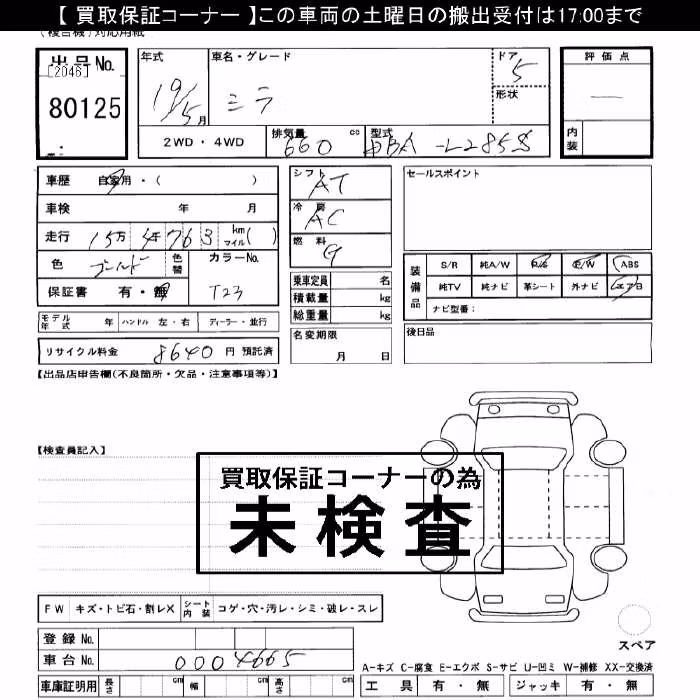 【 買取保証コーナー 】この車両の土曜日の搬出受付は17:00まで
(複合機)対応用紙
出品No.
[2046]
80125
年式
19/5月
車名・グレード
ミラ
ドア
5
形状
評価点
―
内装
2WD・4WD
排気量 660 cc
型式 DBA-L285S
車歴 自家用・( )
車検 年 月
走行 15万4千763 km マイル( )
色 ゴールド 色替
カラーNo.
T23
保証書 有・無
モデル年式 年 ハンドル 左・右 ディーラー・並行
リサイクル料金 8640 円 預託済
シフト AT
冷房 AC
燃料 G
乗車定員 名
積載量 kg
総重量 kg
名変期限
月 日
セールスポイント
装備品
S/R 純A/W P/S P/W ABS
純TV 純ナビ 革シート 外ナビ エアB
ナビ型番:
後日品
【出品店申告欄(不良箇所・欠品・注意事項等)】
【検査員記入】
買取保証コーナーの為
未検査
FW キズ・トビ石・割レX シート内装 コゲ・穴・汚レ・シミ・破レ・スレ
登録No.
車台No. 0004665
車庫証明用 長さ cm 幅 cm 高さ cm
スペア
A-キズ C-腐食 E-エクボ S-サビ U-凹ミ W-補修 XX-交換済
工具 有・無 ジャッキ 有・無